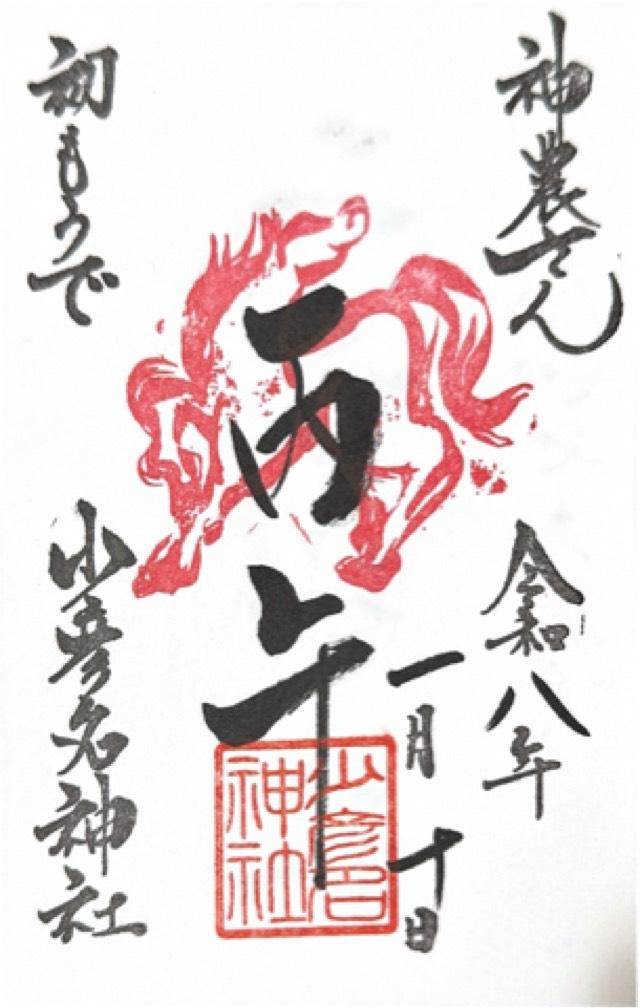 神農さん
令和八年
一月十日
丙午
初もうで
少彦名神社
少彦名
神社